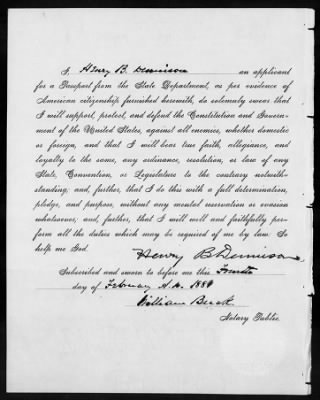 I, Henry B. Dennison an applicant
for a Passport from the State Department, as per evidence of
American citizenship furnished herewith, do solemnly swear that
I will support, protect, and defend the Constitution and Govern-
ment of the United States, against all enemies, whether domestic
or foreign, and that I will bear true faith, allegiance, and
loyalty to the same, any ordinance, resolution, or law of any
State, Convention, or Legislature to the contrary notwith-
standing; and, further, that I do this with a full determination,
pledge, and purpose, without any mental reservation or evasion
whatsoever; and, further, that I will well and faithfully per-
form all the duties which may be required of me by law. So
help me God.
Henry B Dennison
Subscribed and sworn to before me this Fourth
day of February A.D. 1889
William Buck
Notary Public.